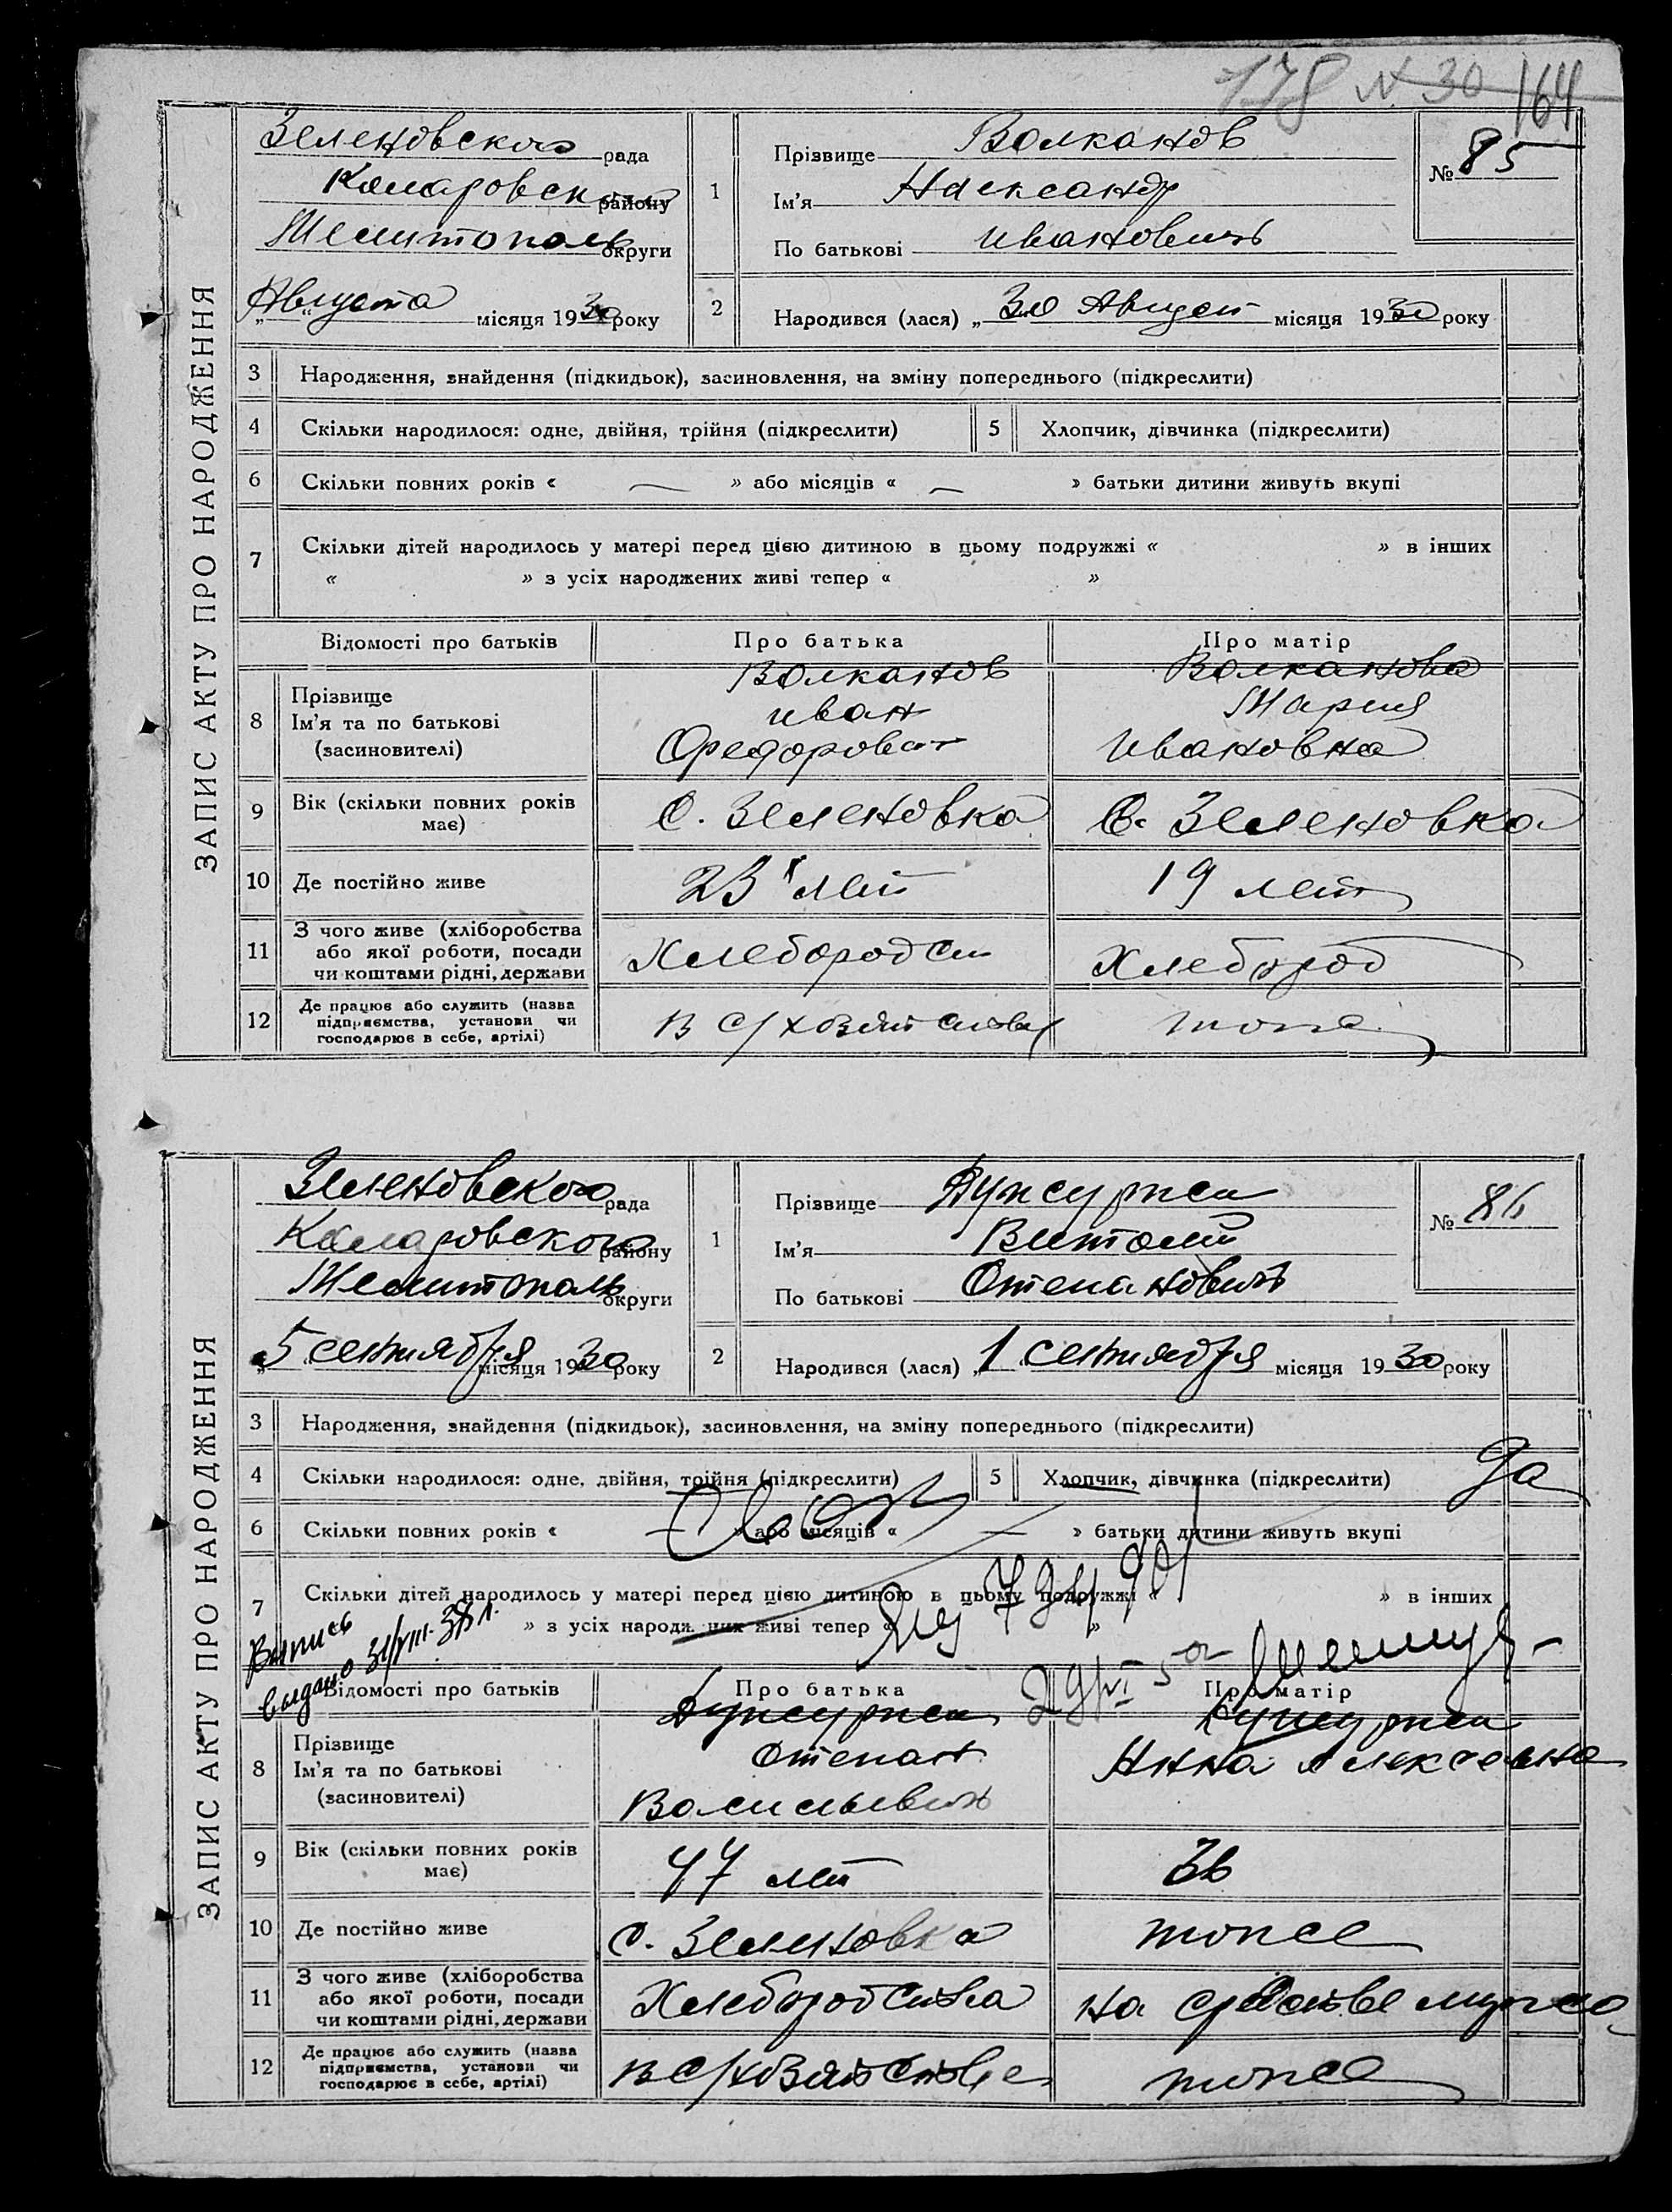 178 N 30 164
ЗАПИС АКТУ ПРО НАРОДЖЕННЯ
Зеленовского рада
район у
Мелитополь округи
Августа місяця 1930 року
1
Прізвище Волканов
Ім’я Александр
По батькові Ивановичъ
№ 85
2
Народився (лася) „30 Август місяця 1930 року
3 Народження, знайдення (підкидьок), засиновлення, на зміну попереднього (підкреслити)
4 Скільки народилося: одне, двійня, трійня (підкреслити) 5 Хлопчик, дівчинка (підкреслити)
6 Скільки повних років « — » або місяців « — » батьки дитини живуть вкупі
7 Скільки дітей народилось у матері перед цією дитиною в цьому подружжі « » в інших
« » з усіх народжених живі тепер « »
Відомості про батьків Про батька Про матір
8 Прізвище Ім’я та по батькові (засиновителі)
Волканов Иван Федорович
Волканова Мария Ивановна
9 Вік (скільки повних років має) С. Зеленовка С. Зеленовка
10 Де постійно живе 23 лет 19 лет
11 З чого живе (хліборобства або якої роботи, посади чи коштами рідні, держави
Хлебород Хлебород
12 Де працює або служить (назва підприємства, установи чи господарює в себе, артілі)
В с/хозяйства тоже
ЗАПИС АКТУ ПРО НАРОДЖЕННЯ
Зеленовского рада
району
Мелитополь округи
„5 сентября місяця 1930 року
1
Прізвище
Ім’я Виталий
По батькові Степановичъ
№ 86
2
Народився (лася) „1 сентября місяця 1930 року
3 Народження, знайдення (підкидьок), засиновлення, на зміну попереднього (підкреслити)
4 Скільки народилося: одне, двійня, трійня (підкреслити) 5 Хлопчик, дівчинка (підкреслити) да
6 Скільки повних років « — » або місяців « — » батьки дитини живуть вкупі
7 Скільки дітей народилось у матері перед цією дитиною в цьому подружжі « » в інших
» з усіх народжених живі тепер « »
Выпись
выдано 31/VIII.
Відомості про батьків Про батька Про матір
8 Прізвище Ім’я та по батькові (засиновителі)
Степан Васильевич
Анна Алексеевна
9 Вік (скільки повних років має) 47 лет 36
10 Де постійно живе С. Зеленовка тоже
11 З чого живе (хліборобства або якої роботи, посади чи коштами рідні, держави
Хлебородства на средстве мужа
12 Де працює або служить (назва підприємства, установи чи господарює в себе, артілі)
В с/хозяйстве тоже